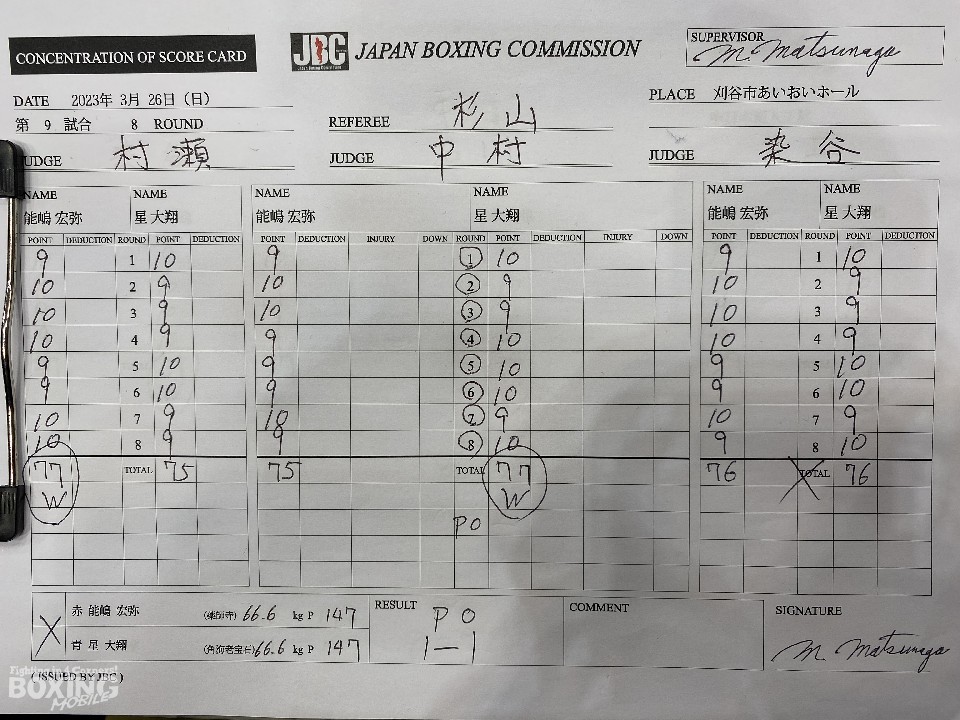 CONCENTRATION OF SCORE CARD
JBC JAPAN BOXING COMMISSION
SUPERVISOR M. Matsunaga
DATE 2023年 3月 26日 (日)
PLACE 刈谷市あいおいホール
第 9 試合 8 ROUND
REFEREE 杉山
JUDGE 村瀬
JUDGE 中村
JUDGE 染谷
NAME NAME NAME NAME NAME NAME
能嶋 宏弥 星 大翔 能嶋 宏弥 星 大翔 能嶋 宏弥 星 大翔
POINT DEDUCTION ROUND POINT DEDUCTION POINT DEDUCTION INJURY DOWN ROUND POINT DEDUCTION INJURY DOWN POINT DEDUCTION ROUND POINT DEDUCTION
9 1 10 9 1 10 9 1 10
10 2 9 10 2 9 10 2 9
10 3 9 10 3 9 10 3 9
10 4 9 9 4 10 10 4 9
9 5 10 9 5 10 9 5 10
9 6 10 9 6 10 9 6 10
10 7 9 10 7 9 10 7 9
10 8 9 9 8 10 9 8 10
77 TOTAL 75 75 TOTAL 77 76 TOTAL 76
W W
PO
赤 能嶋 宏弥 (薬師寺) 66.6 kg P 147
青 星 大翔 (角海老宝石) 66.6 kg P 147
RESULT PO
1-1
COMMENT
SIGNATURE
M. Matsunaga
(ISSUED BY JBC)
Fighting in 4 Corners!
BOXING
MOBILE